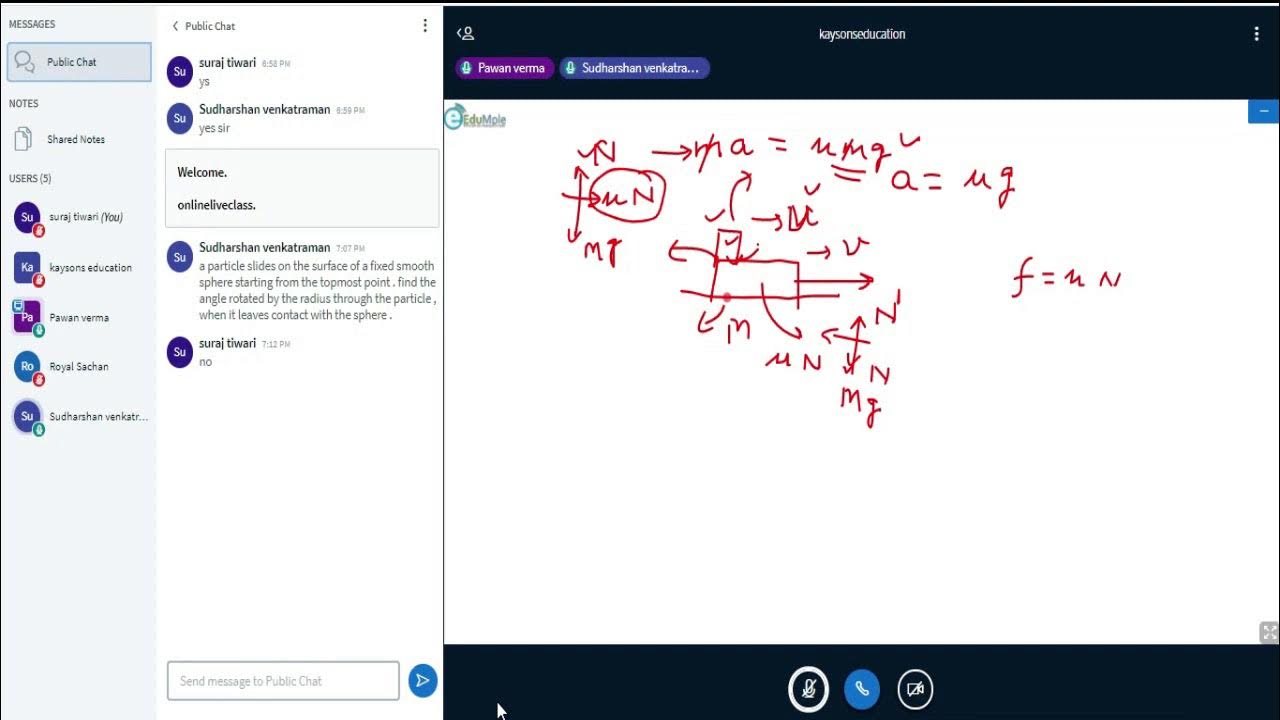 MESSAGES
Public Chat
NOTES
Shared Notes
USERS (5)
Su suraj tiwari (You)
Ka kaysons education
Pa Pawan verma
Ro Royal Sachan
Su Sudharshan venkatr...
Public Chat
Su suraj tiwari 6:58 PM
ys
Su Sudharshan venkatraman 6:59 PM
yes sir
Welcome.
onlineliveclass.
Su Sudharshan venkatraman 7:07 PM
a particle slides on the surface of a fixed smooth
sphere starting from the topmost point . find the
angle rotated by the radius through the particle ,
when it leaves contact with the sphere .
Su suraj tiwari 7:12 PM
no
Send message to Public Chat
kaysonseducation
Pawan verma Sudharshan venkatra...
EduMple
N ma = μmg
μN a = μg
mg
v
f = μ N
N'
m
μ N
N
Mg